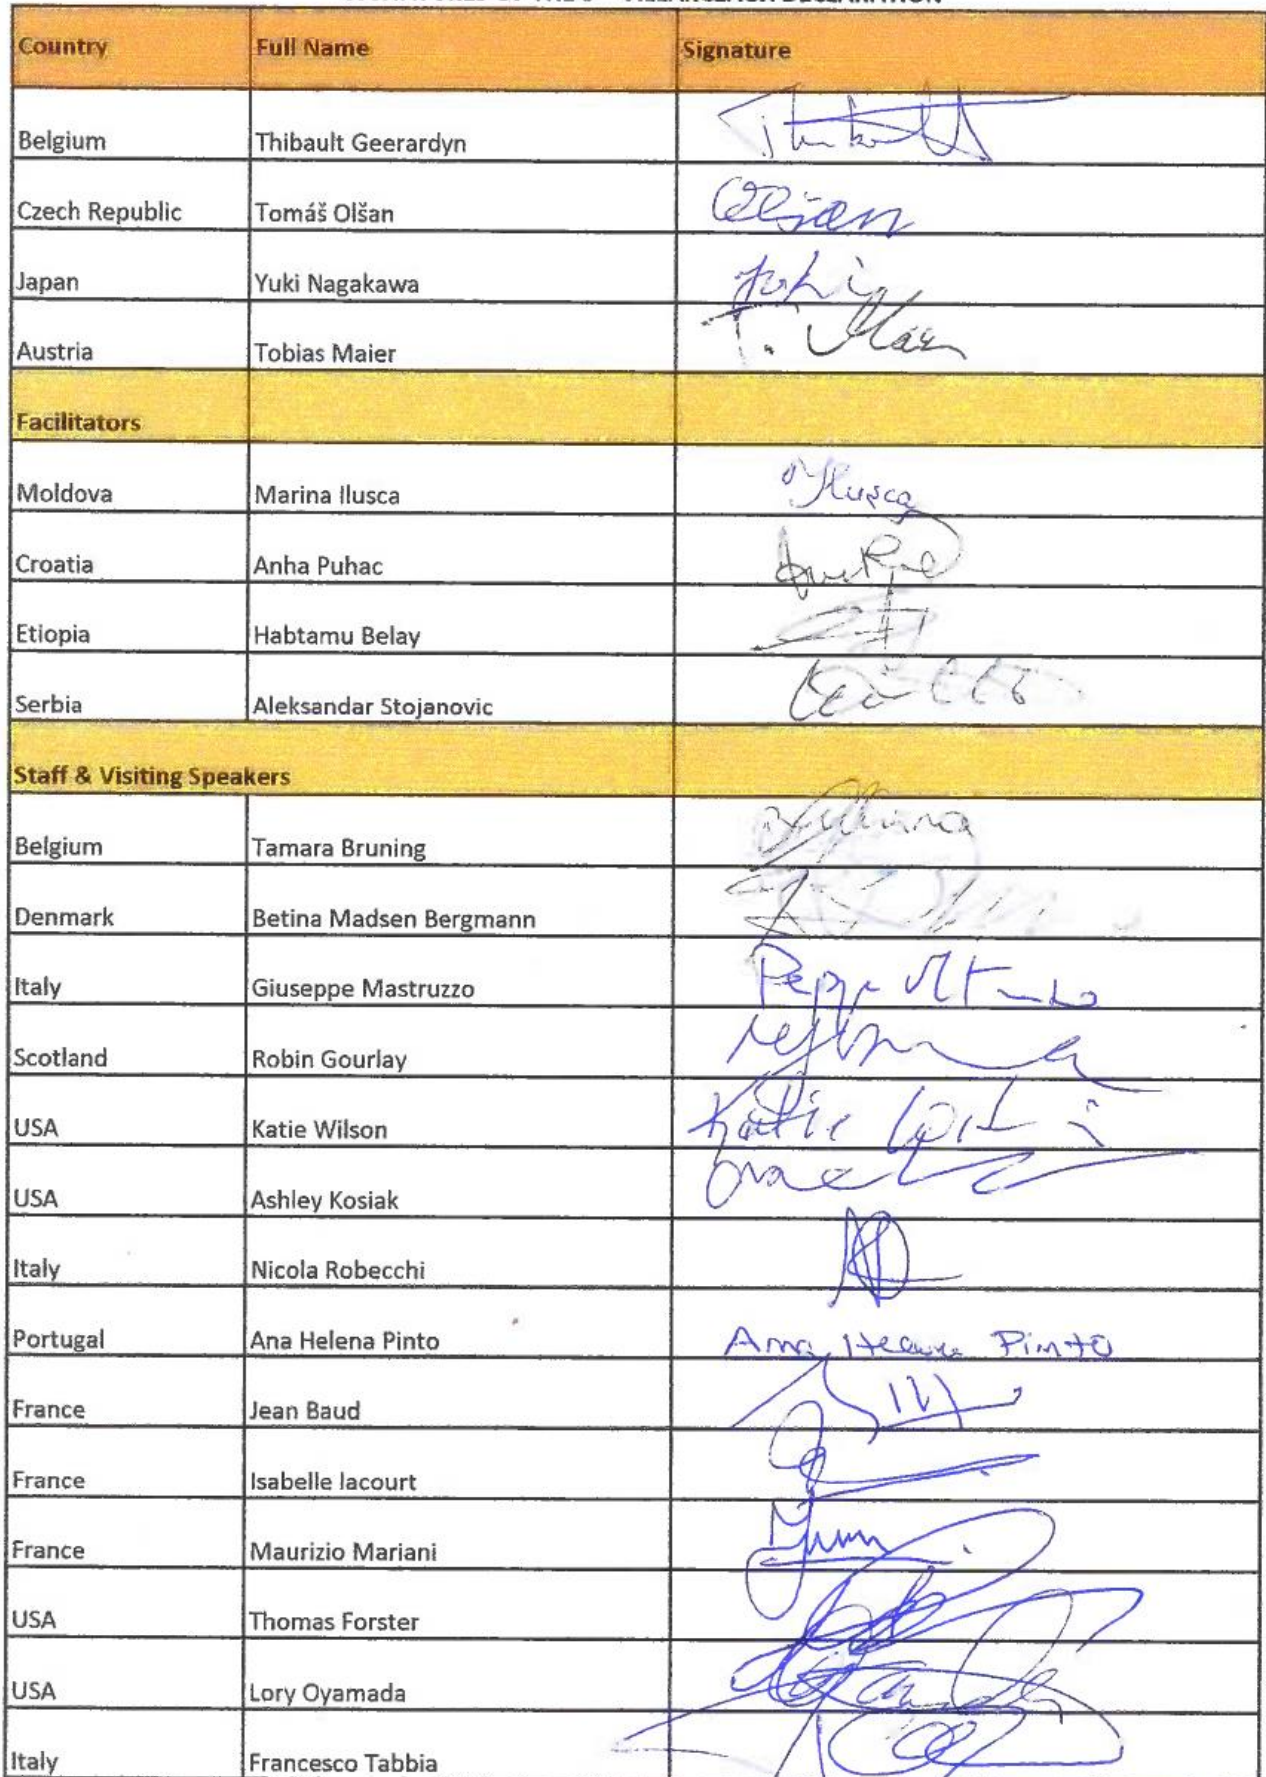 Country Full Name Signature
Belgium Thibault Geerardyn Thibault
Czech Republic Tomáš Olšan Olšan
Japan Yuki Nagakawa Yuki
Austria Tobias Maier T. Maier
Facilitators
Moldova Marina Ilusca Ilusca
Croatia Anha Puhac
Etiopia Habtamu Belay
Serbia Aleksandar Stojanovic
Staff & Visiting Speakers
Belgium Tamara Bruning
Denmark Betina Madsen Bergmann
Italy Giuseppe Mastruzzo
Scotland Robin Gourlay
USA Katie Wilson Katie
USA Ashley Kosiak
Italy Nicola Robecchi
Portugal Ana Helena Pinto Ana Helena Pinto
France Jean Baud
France Isabelle lacourt
France Maurizio Mariani
USA Thomas Forster
USA Lory Oyamada
Italy Francesco Tabbia